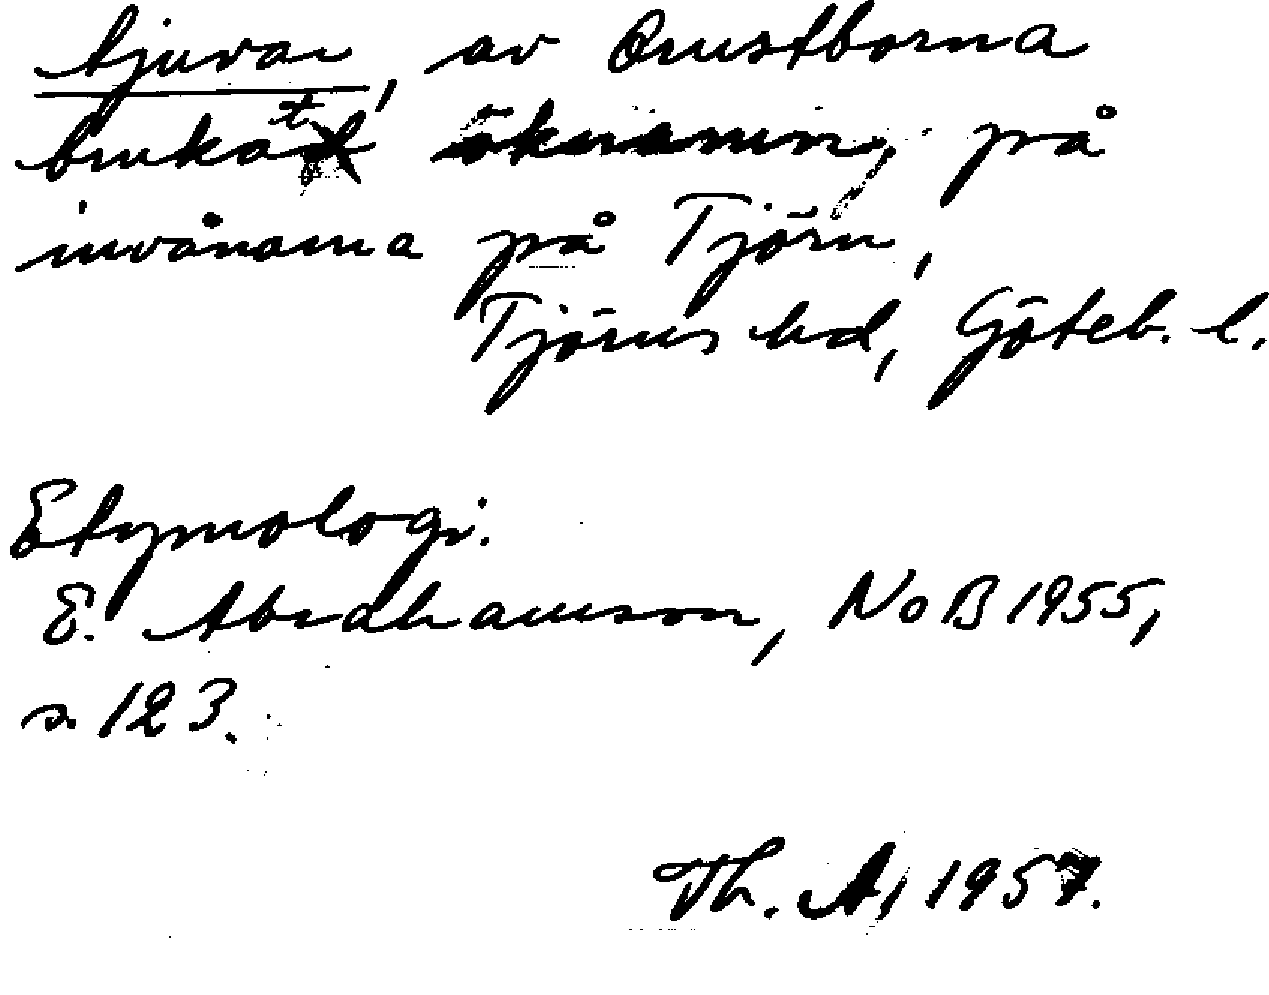 tjuvar, av Orustborna
brukat öknamn, på
invånarna på Tjörn,
Tjörns hd, Göteb. l.
Etymologi.
E. Abrahamson, NoB 1955,
s. 123.
Th. A, 1957.